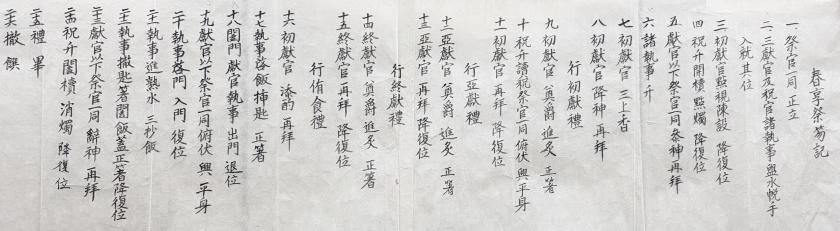 春享祭笏記
一. 祭官一同 正立
二. 三獻官及祝官諸執事 盥水帨手
入就其位
三. 初獻官 點視陳設 降復位
四 祝升 開櫝 點燭 降復位
五. 獻官以下祭官一同 參神 再拜
六 諸執事 升
七 初獻官 三上香
八 初獻官 降神 再拜
行初獻禮
九 初獻官 奠爵 進炙 正箸
十 祝升讀祝 祭官一同 俯伏 興 平身
十一 初獻官 再拜 降復位
行亞獻禮
十二 亞獻官 奠爵 進炙 正箸
十三 亞獻官 再拜 降復位
行終獻禮
十四 終獻官 奠爵 進炙 正箸
十五 終獻官 再拜 降復位
行侑食禮
十六 初獻官 添酌 再拜
十七 執事 啓飯 揷匙 正箸
十八 闔門 獻官 執事 出門 退位
十九 獻官以下 祭官一同 俯伏 興 平身
二十 執事 啓門 入門 復位
二十一 執事 進熟水 三抄飯
二十二 執事 撤匙箸 闔飯蓋 正箸 降復位
二十三 獻官以下 祭官一同 辭神 再拜
二十四 祝升 闔櫝 消燭 降復位
二十五 禮畢
二十六 撤饌